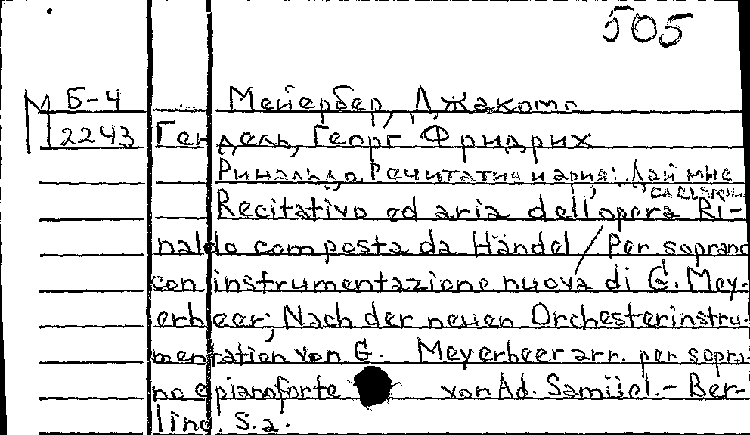 505
М Б-4 Мейербер, Джакомо
2243 Гендель, Георг Фридрих
Ринальдо. Речитатив и ария: Дай мне
Recitativo ed aria dell'opera Ri-
naldo composta da Händel / Per soprano
con instrumentazione nuova di G. Mey-
erbeer; Nach der neuen Orchesterinstru-
mentation von G. Meyerbeer arr. per sopra-
no e pianoforte von Ad. Samüel.- Ber-
lino, s.a.